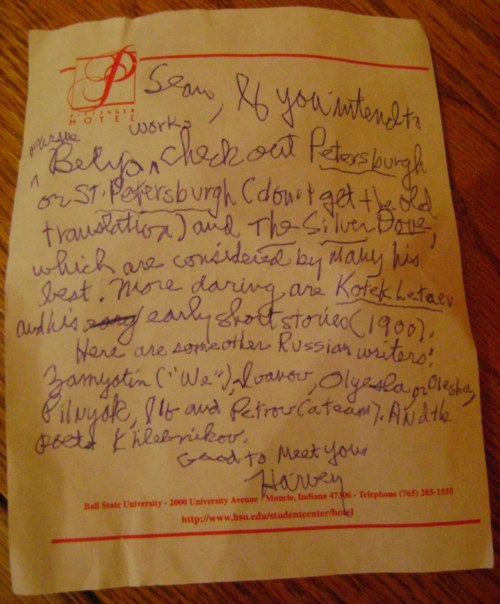 P
PITTENGER
HOTEL
Sean, If you intend to
pursue works
Bely, check out Petersburgh
or St. Petersburgh (don't get the old
translation) and The Silver Dove,
which are considered by many his
best. More daring are Kotek Letaev
and his early short stories (1900).
Here are some other Russian writers:
Zamyotin ("We"), Ivanov, Olyesha or Olesha,
Pilnyak, Ilf and Petrov (a team). And the
poet Khlebnikov.
Good to meet you
Harvey
Ball State University - 2000 University Avenue - Muncie, Indiana 47306 - Telephone (765) 285-1555
http://www.bsu.edu/studentcenter/hotel